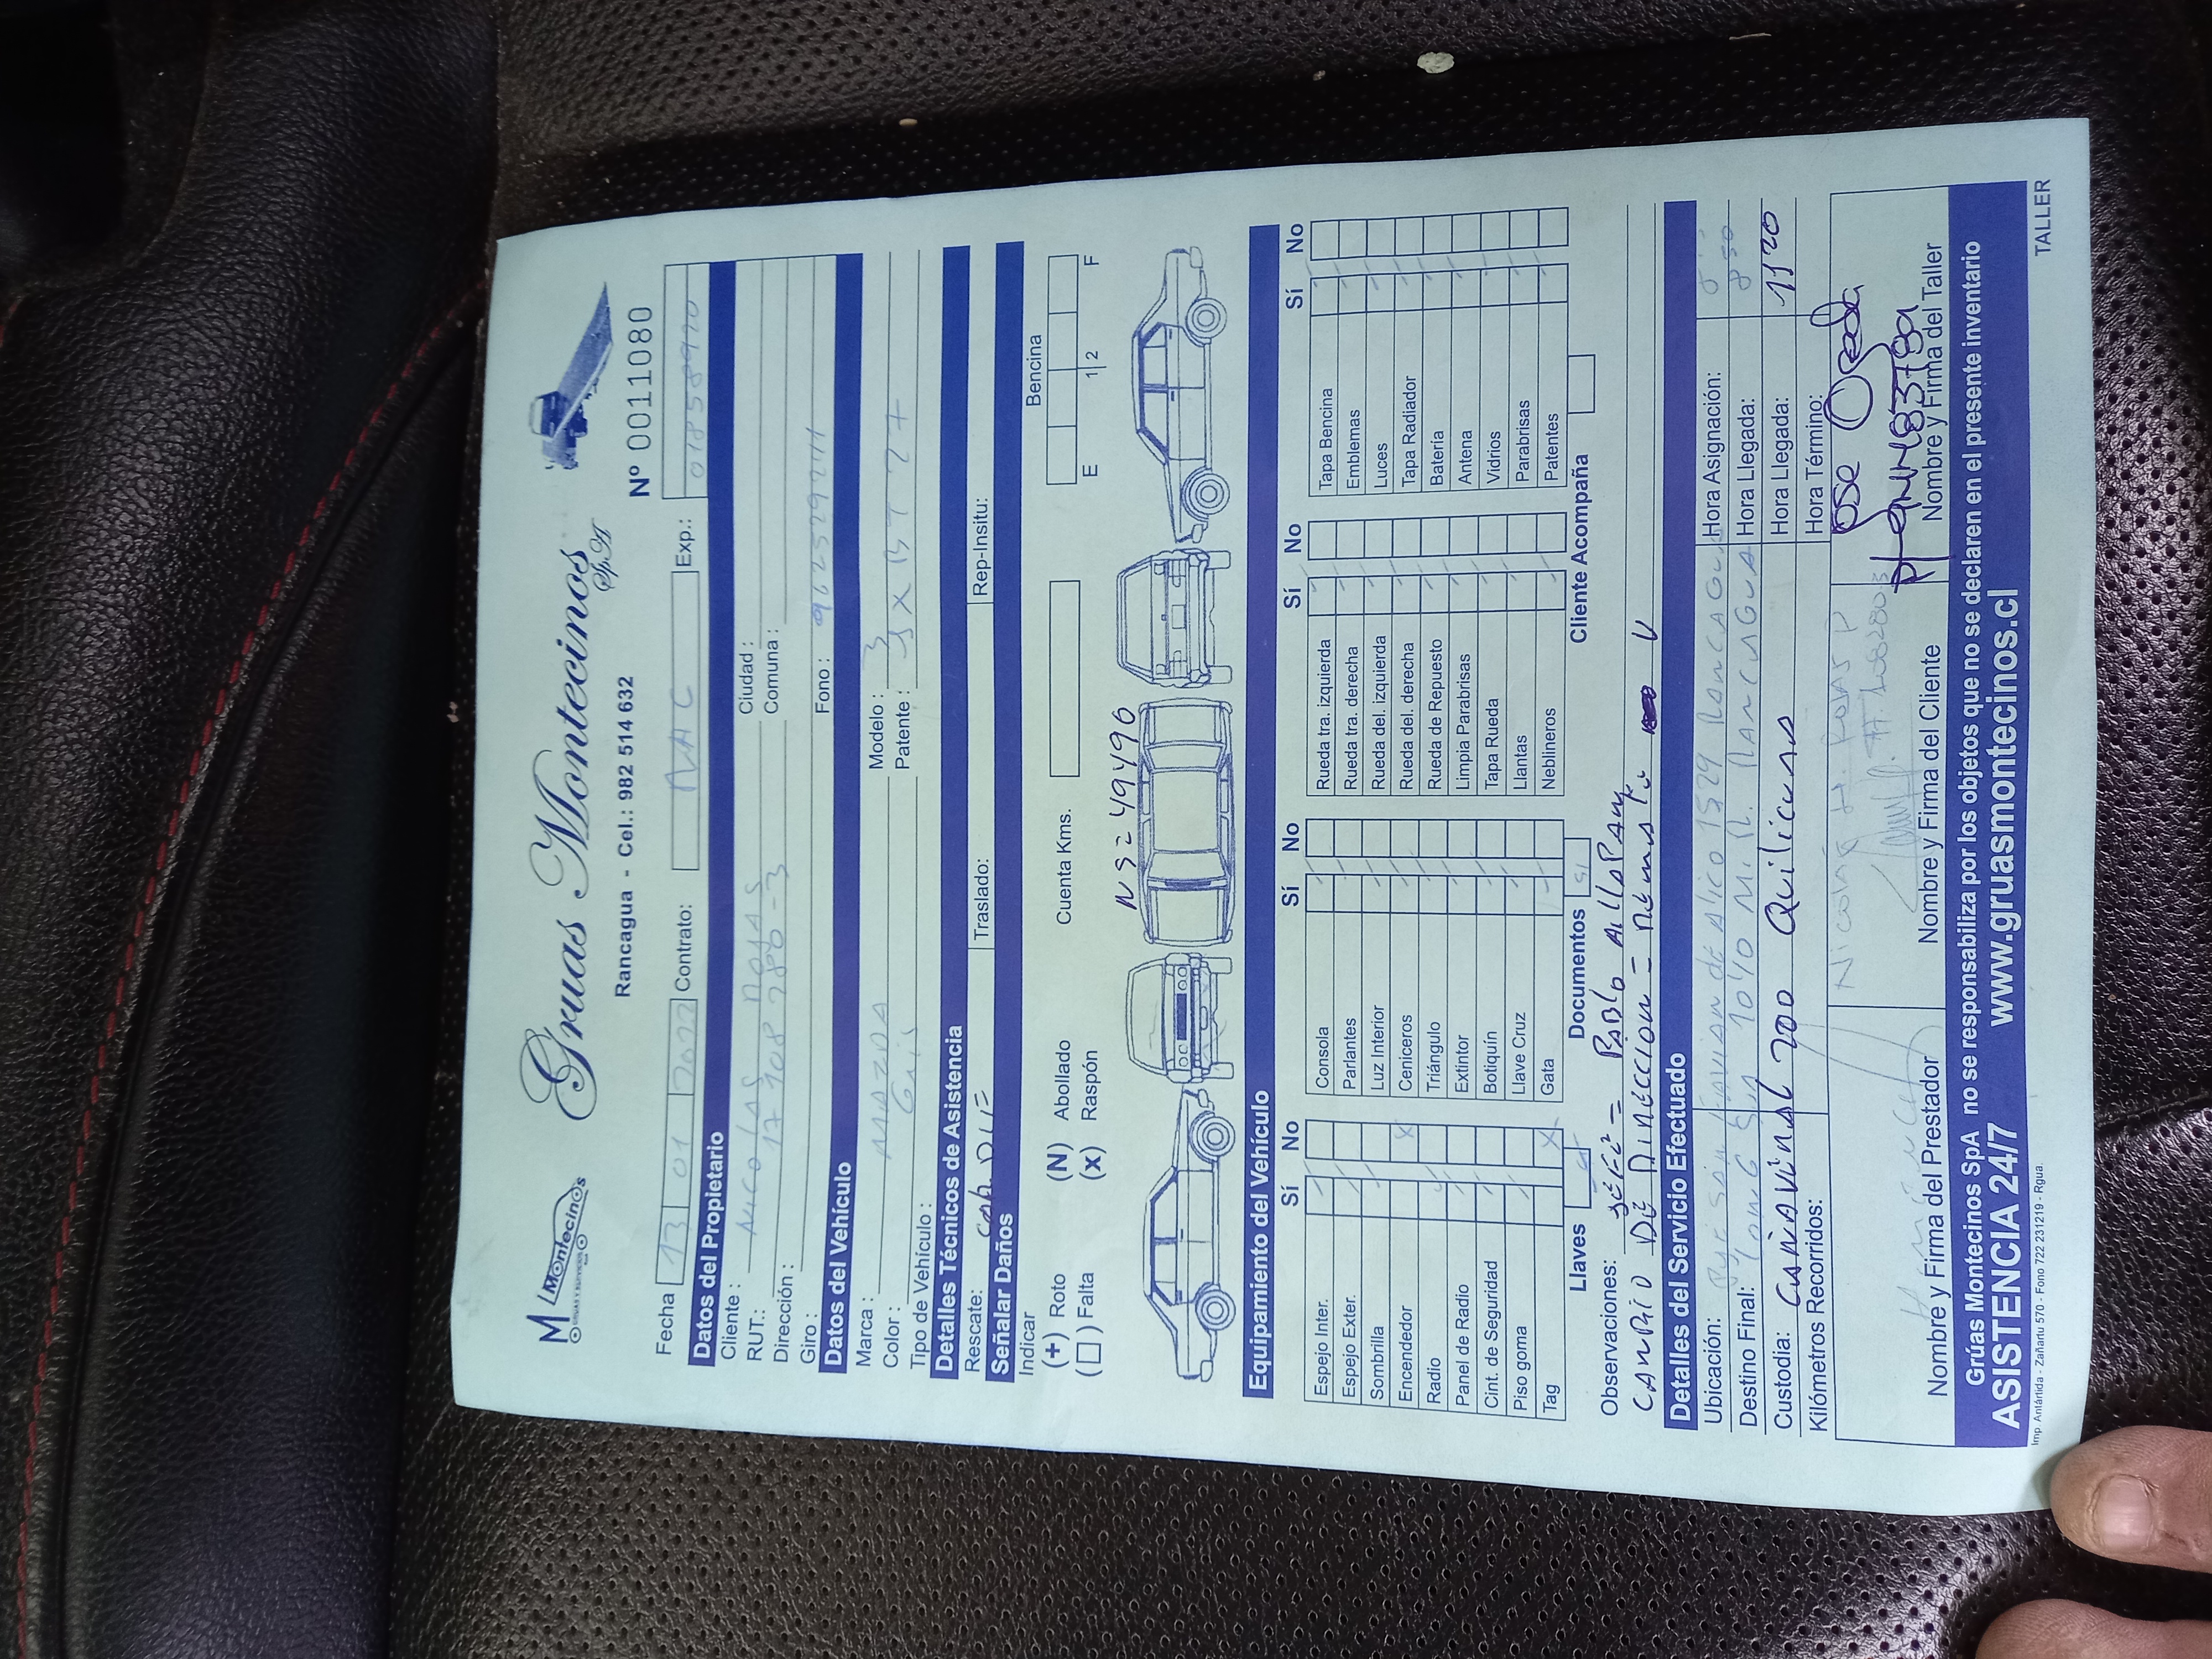 M Montecinos
Gruas Montecinos SpA
Rancagua - Cel.: 982 514 632
Nº 0011080
Fecha 13 01 2022 Contrato: Exp.:
Datos del Propietario
Cliente : Nicolas Rojas Ciudad :
RUT.: 17 108 280-3 Comuna :
Dirección :
Giro : Fono :
Datos del Vehículo
Marca : MAZDA Modelo : 3
Color : Gris Patente :
Tipo de Vehículo :
Detalles Técnicos de Asistencia
Rescate: Traslado: Rep-Insitu:
Señalar Daños
Indicar
(+) Roto (N) Abollado Cuenta Kms. Bencina
(□) Falta (x) Raspón E 1|2 F
NS= 49496
Equipamiento del Vehículo
Sí No Sí No Sí No Sí No
Espejo Inter. Consola Rueda tra. izquierda Tapa Bencina
Espejo Exter. Parlantes Rueda tra. derecha Emblemas
Sombrilla Luz Interior Rueda del. izquierda Luces
Encendedor X Ceniceros Rueda del. derecha Tapa Radiador
Radio Triángulo Rueda de Repuesto Batería
Panel de Radio Extintor Limpia Parabrisas Antena
Cint. de Seguridad Botiquín Tapa Rueda Vidrios
Piso goma Llave Cruz Llantas Parabrisas
Tag X Gata Neblineros Patentes
Llaves Documentos Cliente Acompaña
Observaciones: Pablo
DE DIRECCION =
Detalles del Servicio Efectuado
Ubicación: 1529 Rancagua Hora Asignación:
Destino Final: 1040 Rancagua Hora Llegada:
Custodia: Cañaveral 200 Quilicura Hora Llegada: 1120
Kilómetros Recorridos: Hora Término:
Nicolás H. Rojas P
Nombre y Firma del Prestador Nombre y Firma del Cliente Nombre y Firma del Taller
Grúas Montecinos SpA no se responsabiliza por los objetos que no se declaren en el presente inventario
ASISTENCIA 24/7 www.gruasmontecinos.cl
Imp. Antártida - Zañartu 570 - Fono 722 231219 - Rgua. TALLER